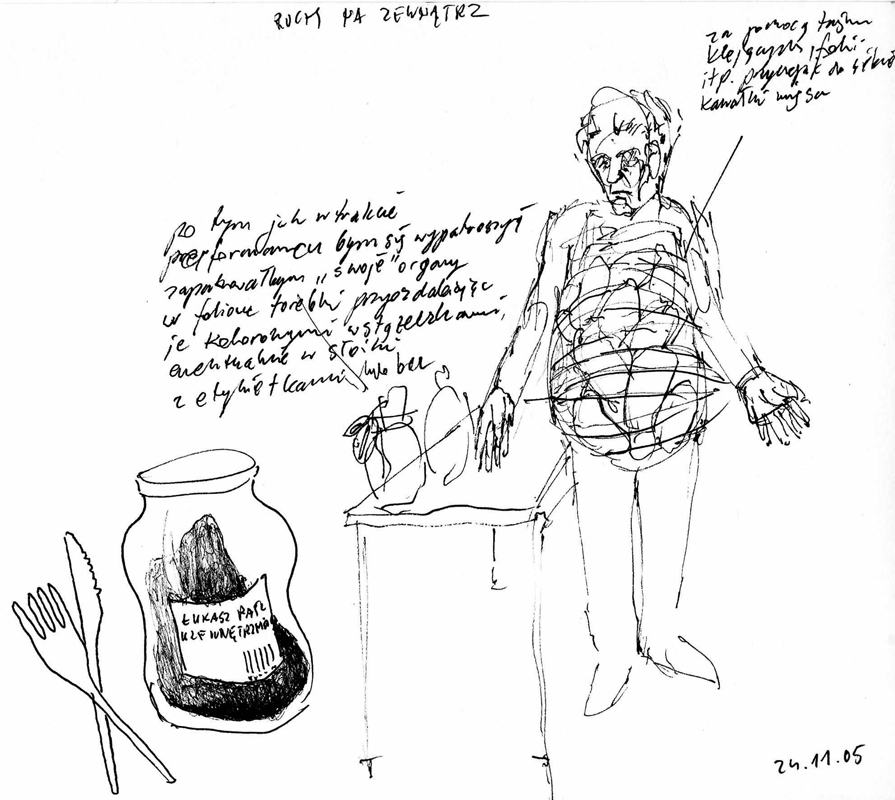 RUCHY NA ZEWNĄTRZ
za pomocą taśm
klejących, folii
itp. do siebie
kawałki mięsa
po tym jak w trakcie
bym się wypatroszył
zapakowałbym „swoje” organy
w foliowe torebki przyozdabiając
je kolorowymi wstążeczkami,
ewentualnie w słoiki
z etykietkami
ŁUKASZ
UZEWNĘTRZNIA
24.11.05